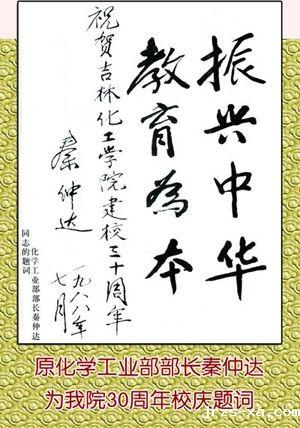 振兴中华
教育为本
祝贺吉林化工学院建校三十周年
秦仲达
一九八八年
七月
化学工业部部长秦仲达
同志的题词
原化学工业部部长秦仲达
为我院30周年校庆题词